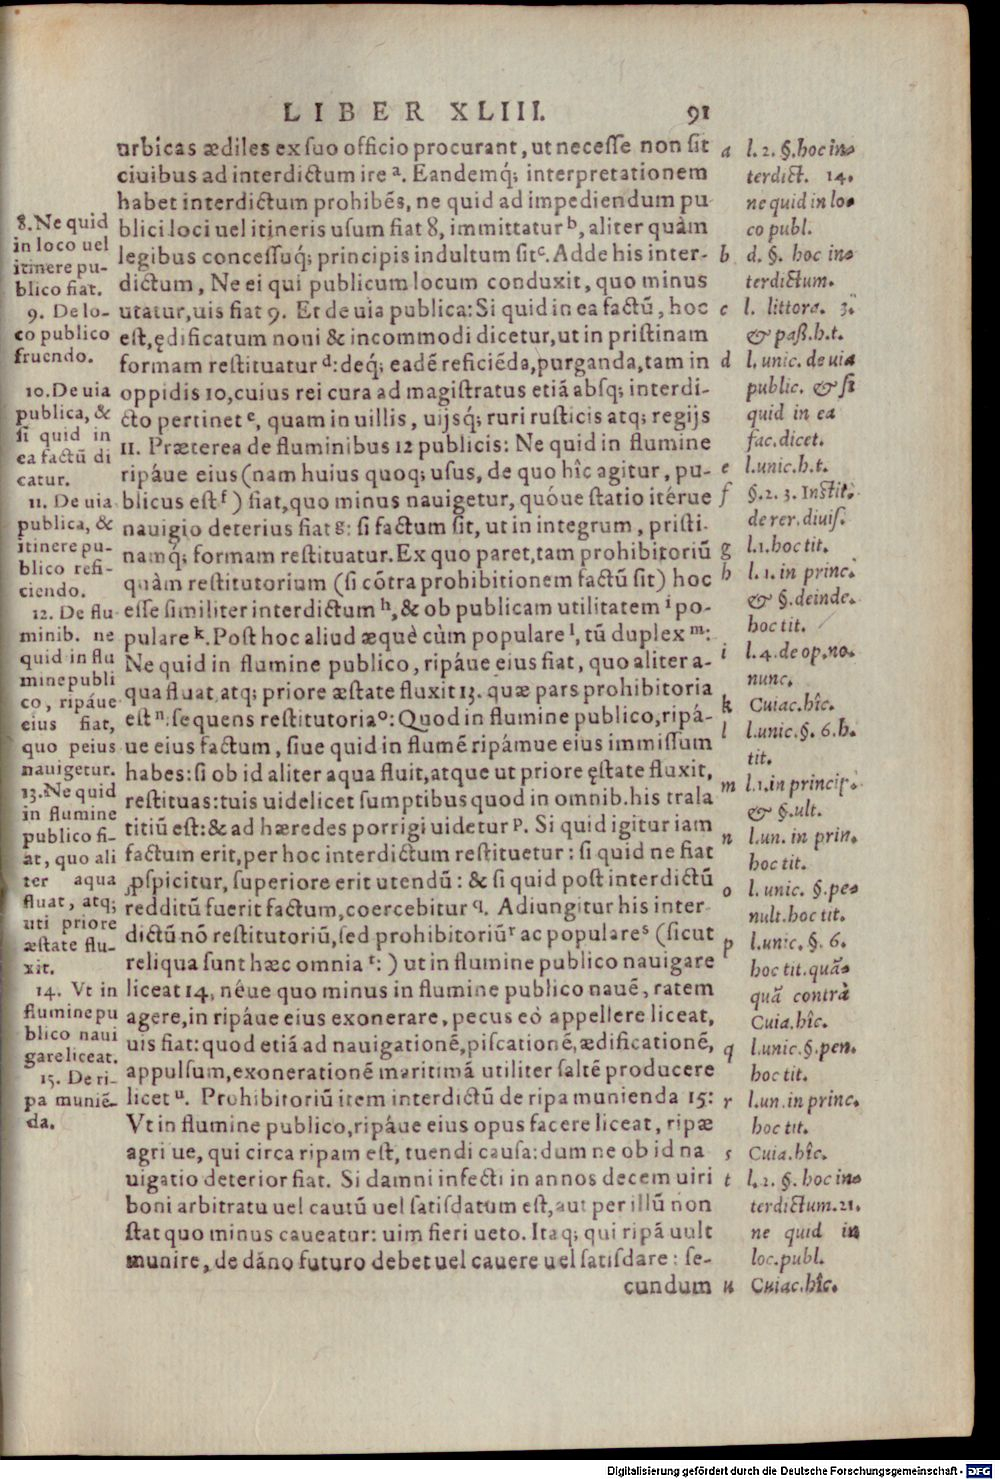 LIBER XLIII. 91
urbicas ædiles ex suo officio procurant, ut necesse non sit
ciuibus ad interdictum ire a. Eandemq́; interpretationem
habet interdictum prohibẽs, ne quid ad impediendum pu
blici loci uel itineris usum fiat 8, immittatur b, aliter quàm
legibus concessuq́; principis indultum sit c. Adde his inter-
dictum, Ne ei qui publicum locum conduxit, quo minus
utatur, uis fiat 9. Et de uia publica: Si quid in ea factũ, hoc
est, ędificatum noui & incommodi dicetur, ut in pristinam
formam restituatur d: deq́; eadẽ reficiẽda, purganda, tam in
oppidis 10, cuius rei cura ad magistratus etiã absq; interdi-
cto pertinet e, quam in uillis, uijsq́; ruri rusticis atq; regijs
11. Præterea de fluminibus 12 publicis: Ne quid in flumine
ripáue eius (nam huius quoq; usus, de quo hîc agitur, pu-
blicus est f) fiat, quo minus nauigetur, quóue statio itérue
nauigio deterius fiat g: si factum sit, ut in integrum, pristi-
namq́; formam restituatur. Ex quo paret, tam prohibitoriũ
quàm restitutorium (si cõtra prohibitionem factũ sit) hoc
esse similiter interdictum h, & ob publicam utilitatem i po-
pulare k. Post hoc aliud æquè cùm populare l, tũ duplex m:
Ne quid in flumine publico, ripáue eius fiat, quo aliter a-
qua fluat, atq; priore æstate fluxit 13. quæ pars prohibitoria
est n. sequens restitutoria o: Quod in flumine publico, ripá-
ue eius factum, siue quid in flumẽ ripámue eius immissum
habes: si ob id aliter aqua fluit, atque ut priore ęstate fluxit,
restituas: tuis uidelicet sumptibus quod in omnib. his trala
titiũ est: & ad hæredes porrigi uidetur p. Si quid igitur iam
factum erit, per hoc interdictum restituetur: si quid ne fiat
ꝓspicitur, superiore erit utendũ: & si quid post interdictũ
redditũ fuerit factum, coercebitur q. Adiungitur his inter-
dictũ nõ restitutoriũ, sed prohibitoriũ r ac populare s (sicut
reliqua sunt hæc omnia t:) ut in flumine publico nauigare
liceat 14, néue quo minus in flumine publico nauẽ, ratem
agere, in ripáue eius exonerare, pecus eò appellere liceat,
uis fiat: quod etiã ad nauigationẽ, piscationẽ, ædificationẽ,
appulsum, exonerationẽ maritimã utiliter saltẽ producere
licet u. Prohibitoriũ item interdictũ de ripa munienda 15:
Vt in flumine publico, ripáue eius opus facere liceat, ripæ
agri ue, qui circa ripam est, tuendi causa: dum ne ob id na
uigatio deterior fiat. Si damni infecti in annos decem uiri
boni arbitratu uel cautũ uel satisdatum est, aut per illũ non
stat quo minus caueatur: uim fieri ueto. Itaq; qui ripã uult
munire, de dãno futuro debet uel cauere uel satisdare: se-
cundum
8. Ne quid
in loco uel
itinere pu-
blico fiat.
9. De lo-
co publico
fruendo.
10. De uia
publica, &
si quid in
ea factũ di
catur.
11. De uia
publica, &
itinere pu-
blico refi-
ciendo.
12. De flu
minib. ne
quid in flu
mine publi
co, ripáue
eius fiat,
quo peius
nauigetur.
13. Ne quid
in flumine
publico fi-
at, quo ali
ter aqua
fluat, atq;
uti priore
æstate flu-
xit.
14. Vt in
flumine pu
blico naui
gare liceat.
15. De ri-
pa muniẽ-
da.
a l. 2. §. hoc in-
terdict. 14.
ne quid in lo-
co publ.
b d. §. hoc in-
terdictum.
c l. littora. 3.
& paß. h. t.
d l. unic. de uia
public. & si
quid in ea
fac. dicet.
e l. unic. h. t.
f §. 2. 3. Instit.
de rer. diuis.
g l. 1. hoc tit.
h l. 1. in princ.
& §. deinde.
hoc tit.
i l. 4. de op. no.
nunc.
k Cuiac. hîc.
l l. unic. §. 6. h.
tit.
m l. 1. in princip.
& §. ult.
n l. un. in prin.
hoc tit.
o l. unic. §. pe-
nult. hoc tit.
p l. unic. §. 6.
hoc tit. quã-
quã contrà
Cuia. hîc.
q l. unic. §. pen.
hoc tit.
r l. un. in princ.
hoc tit.
s Cuia. hîc.
t l. 2. §. hoc in-
terdictum. 21.
ne quid in
loc. publ.
u Cuiac. hîc.
Digitalisierung gefördert durch die Deutsche Forschungsgemeinschaft - DFG